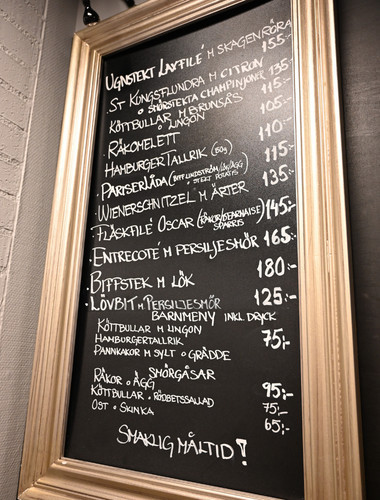 UGNSTEKT LAXFILÉ M SKAGENRÖRA 155:-
ST KUNGSFLUNDRA M CITRON
O SMÖRSTEKTA CHAMPINJONER 135:-
KÖTTBULLAR M BRUNSÅS 115:-
O LINGON
RÄKOMELETT 105:-
HAMBURGERTALLRIK (150g) 110:-
PARISERLÅDA (BIFF LINDSTRÖM/LÖK/ÄGG 115:-
+ STEKT POTATIS)
WIENERSCHNITZEL M ÄRTER 135:-
FLÄSKFILÉ OSCAR (RÄKOR/BEARNAISE 145:-
SPARRIS)
ENTRECOTÉ M PERSILJESMÖR 165:-
BIFFSTEK M LÖK 180:-
LÖVBIT M PERSILJESMÖR 125:-
BARNMENY INKL DRYCK
KÖTTBULLAR M LINGON 75;-
HAMBURGERTALLRIK
PANNKAKOR M SYLT O GRÄDDE
SMÖRGÅSAR
RÄKOR O ÄGG 95;-
KÖTTBULLAR O RÖDBETSSALLAD 75;-
OST O SKINKA 65;-
SMAKLIG MÅLTID!